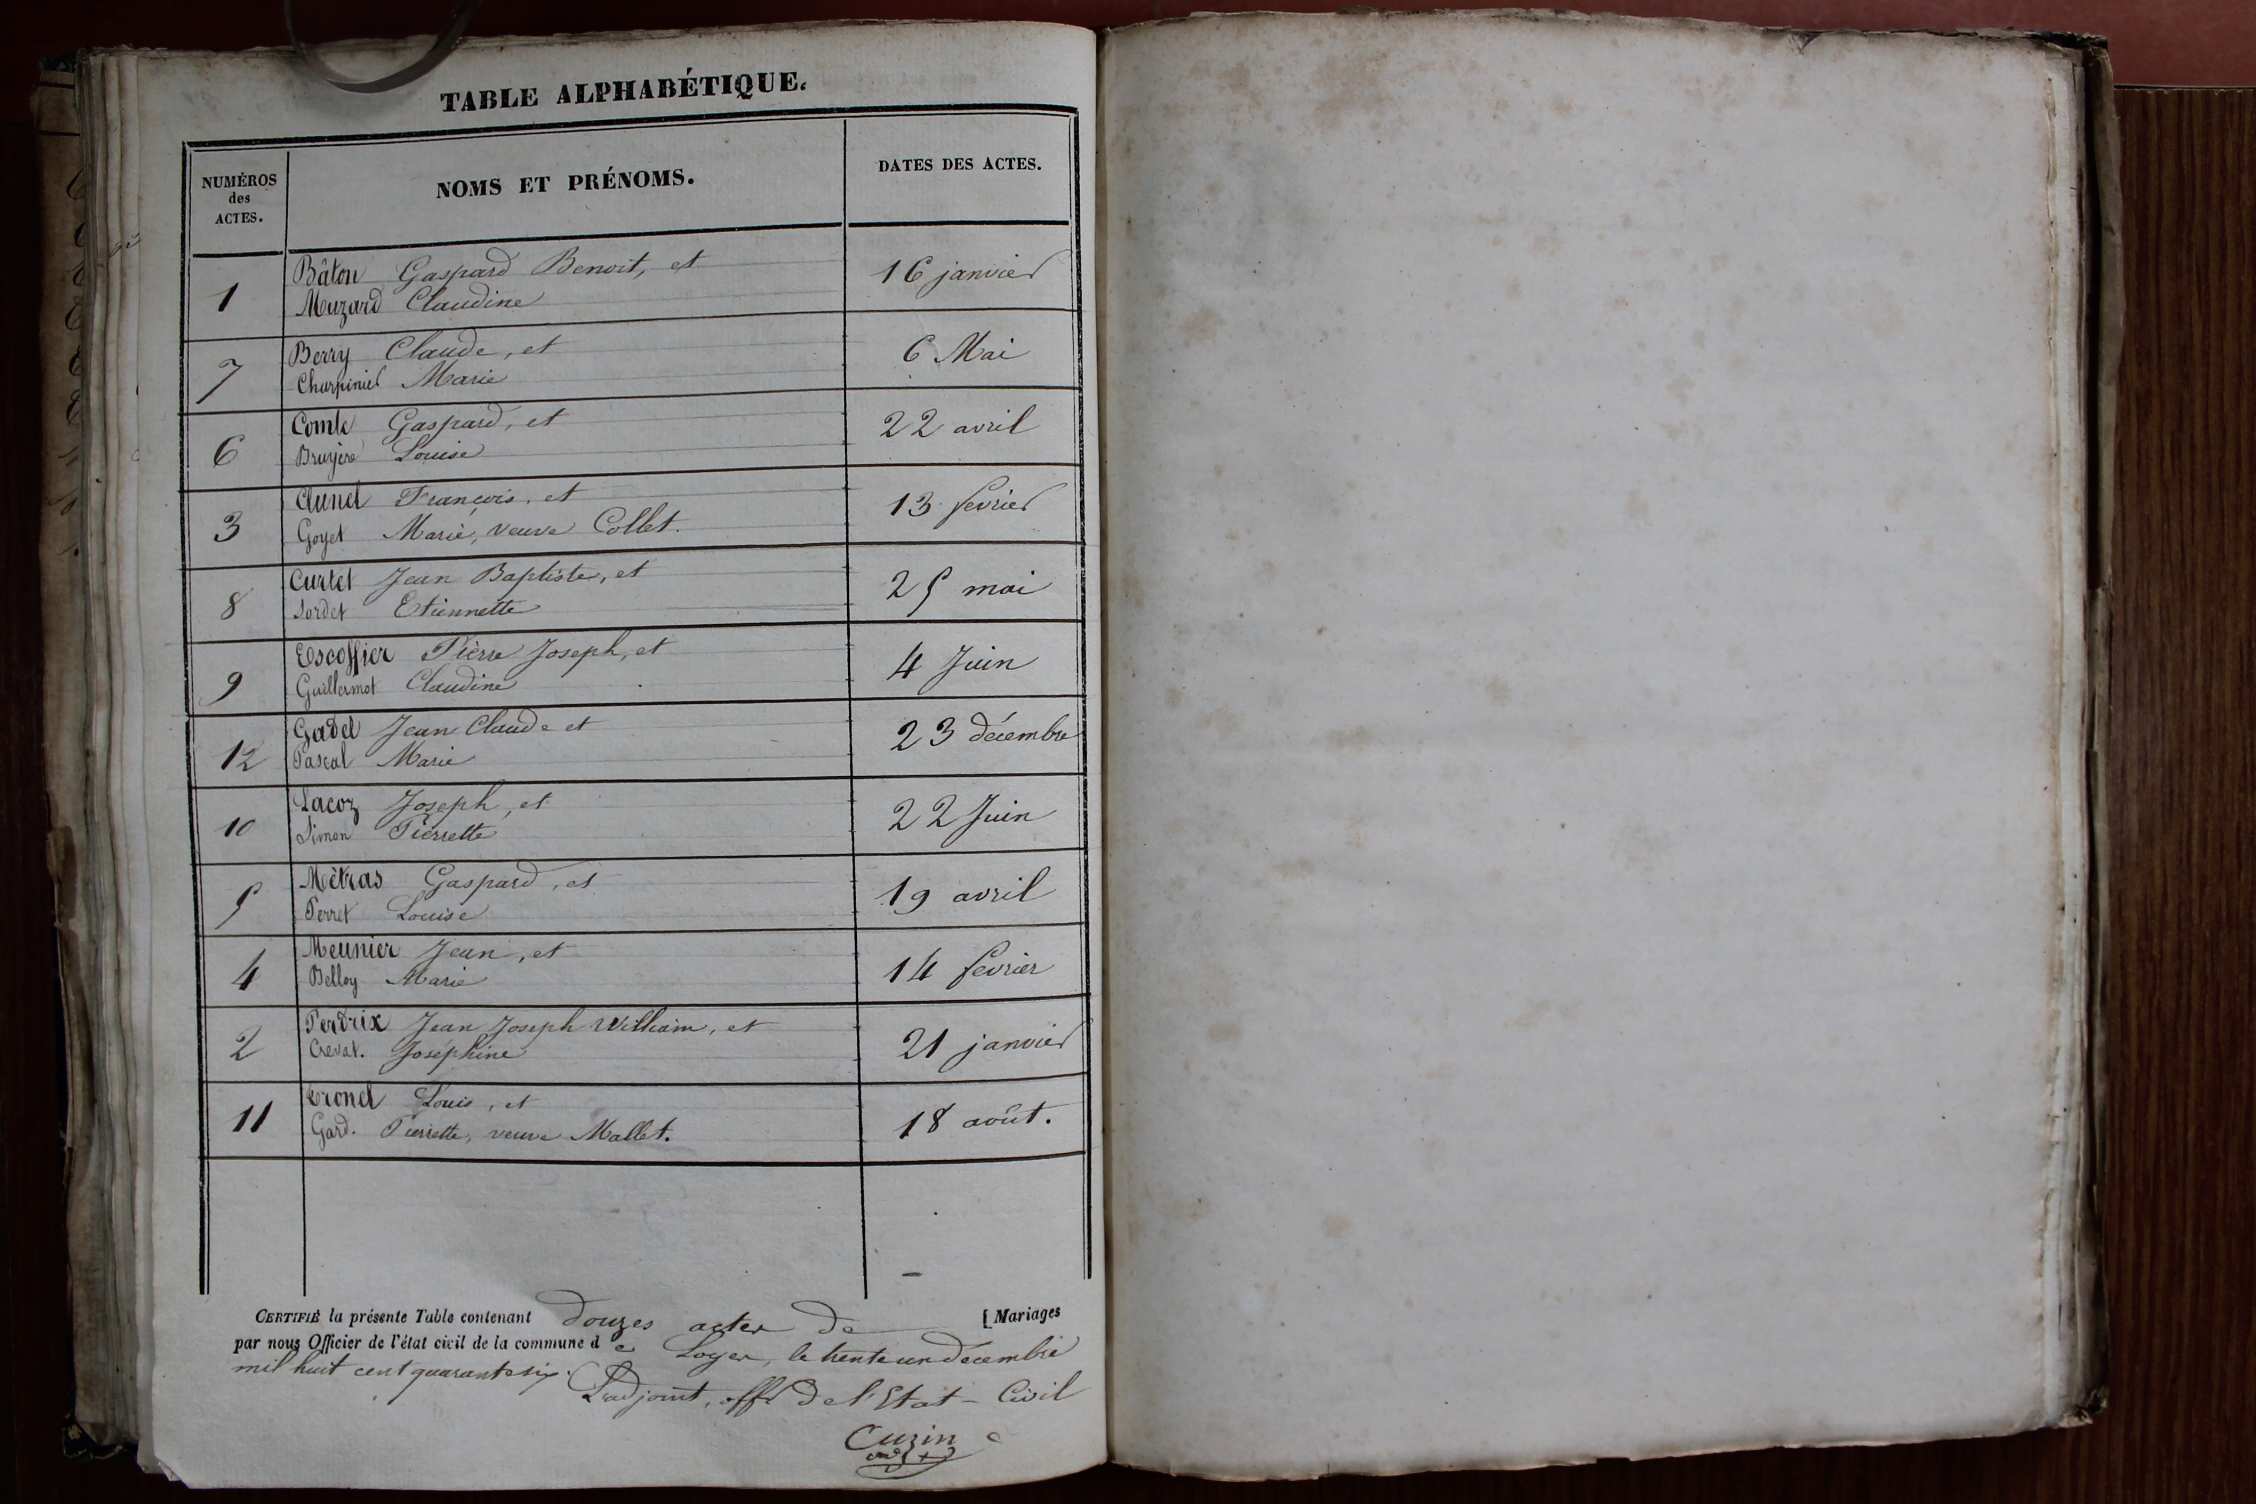 TABLE ALPHABÉTIQUE.
NUMÉROS des ACTES.
NOMS ET PRÉNOMS.
DATES DES ACTES.
1 Bâton Gaspard Benoit, et 16 janvier
Muzard Claudine
7 Berry Claude, et 6 Mai
Charpinel Marie
6 Comte Gaspard, et 22 avril
Bruyère Louise
3 Cunel François, et 13 fevrier
Goyet Marie, veuve Collet.
8 Curtet Jean Baptiste, et 25 mai
Sordet Etiennette
9 Escoffier Pierre Joseph, et 4 Juin
Guillermot Claudine
12 Gadel Jean Claude et 23 décembre
Pascal Marie
10 Lacoz Joseph, et 22 Juin
Simon Pierrette
5 Mètras Gaspard, et 19 avril
Perret Louise
4 Meunier Jean, et 14 fevrier
Belley Marie
2 Perdrix Jean Joseph William, et 21 janvier
Crevat. Joséphine
11 Tronel Louis, et 18 août.
Gard. Pierrette, veuve Mallet.
CERTIFIÉ la présente Table contenant douzes actes de [Mariages
par nous Officier de l'état civil de la commune de Loyes, le trente un décembre
mil huit cent quarante six.
L'adjoint, offr de l'Etat-Civil
Cuzin